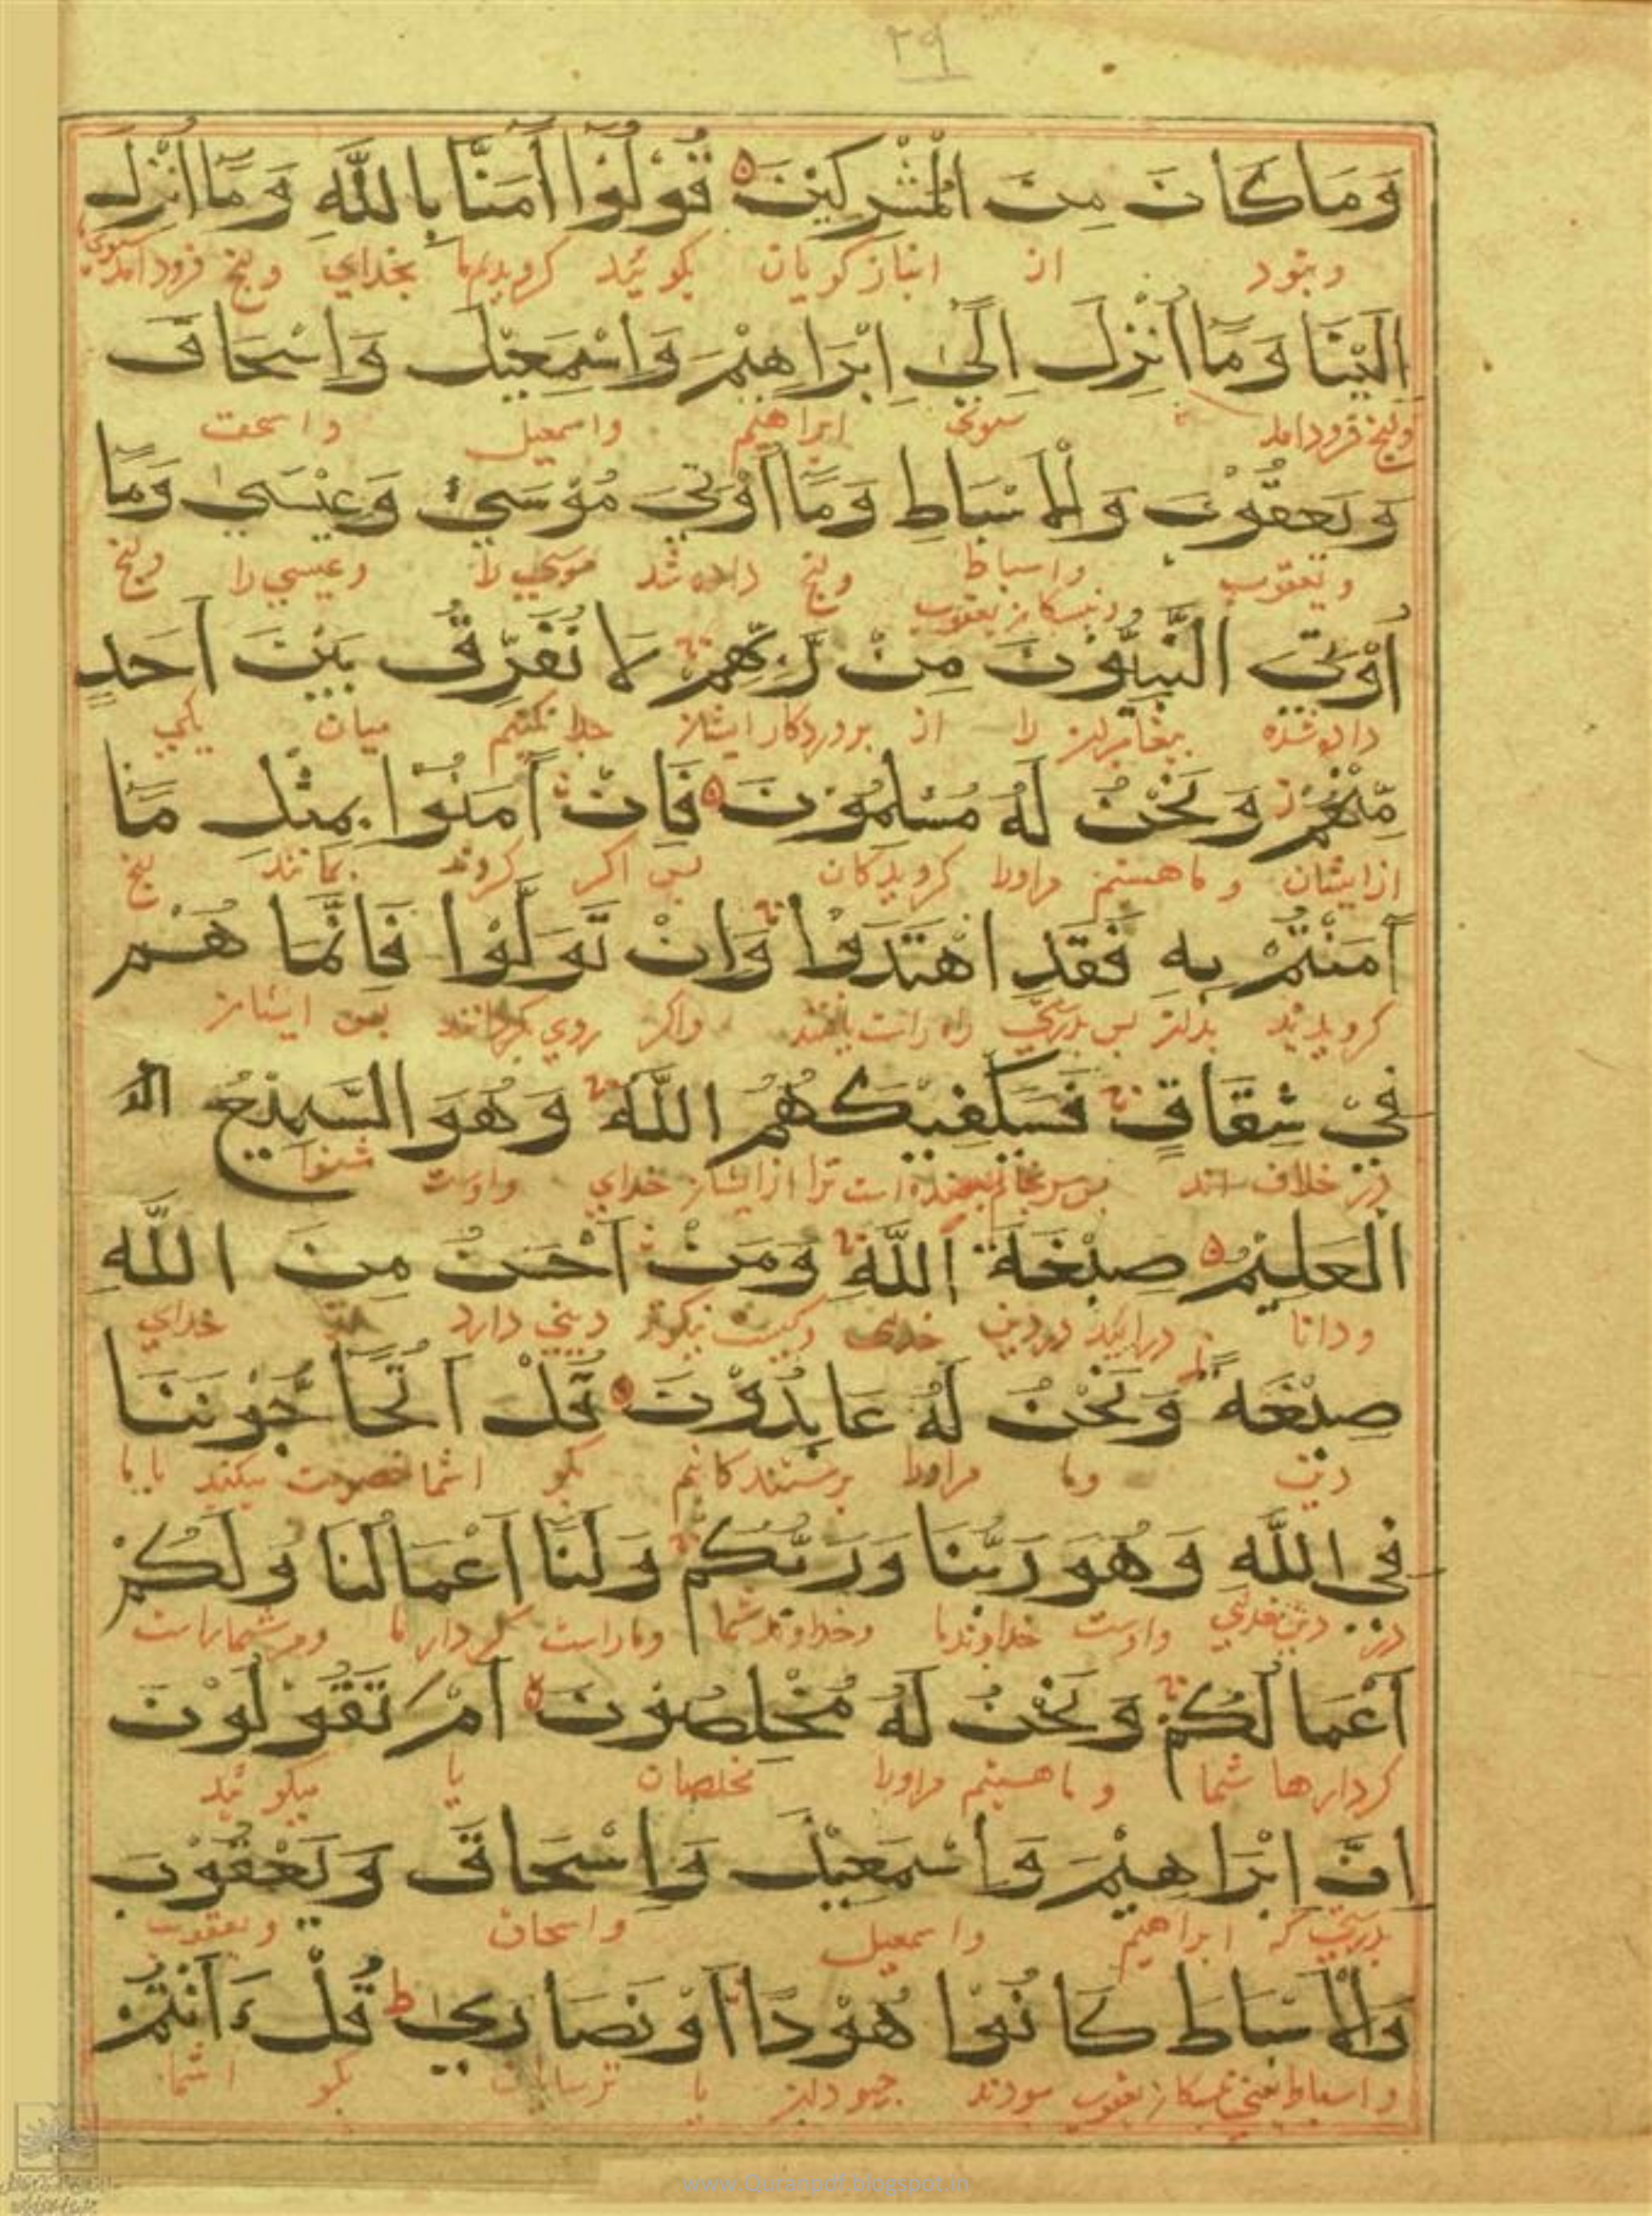 ۲۹
وَمَا كَانَ مِنَ الْمُشْرِكِيْنَ قُوْلُوْا آمَنَّا بِاللَّهِ وَمَا اُنْزِلَ
وبنود از انبازکویان بکوئید کرویدیم بخدای وانچ فرود امد سوی
اِلَيْنَا وَمَا اُنْزِلَ اِلَىٰ اِبْرَاهِيْمَ وَاِسْمَعِيْلَ وَاِسْحَاقَ
وانچ فرود امد سوی ابراهیم واسمعیل واسحق
وَيَعقُوْبَ وَالْاَسْبَاطِ وَمَا اُوْتِيَ مُوْسَى وَعِيْسَىٰ وَمَا
ویعقوب واسباط وانچ داده شد موسی را وعیسی را وانچ
اُوْتِيَ النَّبِيُّوْنَ مِنْ رَّبِّهِمْ لَا نُفَرِّقُ بَيْنَ اَحَدٍ
داده شده را از پروردکار ایشان جدا نکنیم میان یکی
مِّنْهُمْ وَنَحْنُ لَهُ مُسْلِمُوْنَ فَاِنْ آمَنُوْا بِمِثْلِ مَا
ازایشان و ما هستیم مراورا کرویدکان پس اکر کروند بمانند انچ
آمَنْتُمْ بِهِ فَقَدِ اهْتَدَوْا وَاِنْ تَوَلَّوْا فَاِنَّمَا هُمْ
کرویدید بدان پس بدرستی راه راست یافتند واکر روی بکردانند پس ایشان
فِيْ شِقَاقٍ فَسَيَكْفِيْكَهُمُ اللَّهُ وَهُوَ السَّمِيْعُ الع
در خلاف اند ترا ازایشان خدای واوست شنوا
الْعَلِيْمُ صِبْغَةَ اللَّهِ وَمَنْ اَحْسَنُ مِنَ اللَّهِ
ودانا درائید در دین خدای وکیست نیکوتر دینی دارد خدای
صِبْغَةً وَنَحْنُ لَهُ عَابِدُوْنَ قُلْ اَتُحَاجُّوْنَنَا
دین وما مراورا پرستندکانیم بکو اشما خصومت میکنید با ما
فِي اللَّهِ وَهُوَ رَبُّنَا وَرَبُّكُمْ وَلَنَا اَعْمَالُنَا وَلَكُمْ
در دین خدای واوست خداوند ما وخداوند شما وماراست کردار ما ومرشماراست
اَعْمَالُكُمْ وَنَحْنُ لَهُ مُخْلِصُوْنَ اَمْ تَقُوْلُوْنَ
کردارها شما و ما هستیم مراورا مخلصان یا میکوئید
اِنَّ اِبْرَاهِيْمَ وَاِسْمَعِيْلَ وَاِسْحَاقَ وَيَعْقُوْبَ
بدرستی که ابراهیم واسمعیل واسحاق ویعقوب
وَالْاَسْبَاطَ كَانُوْا هُوْدًا اَوْ نَصَارَى قُلْ ءَاَنْتُمْ
واسباط یعنی یعقوب بودند جهودان یا ترسایان بکو اشما
www.Quranpdf.blogspot.in